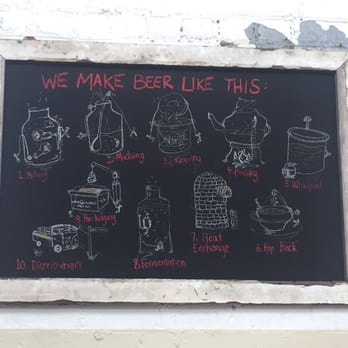 WE MAKE BEER LIKE THIS:
1. Milling
2. Mashing
3. Lautering
4. Boiling
5. Whirlpool
9. Packaging
7. Heat
Exchange
6. Hop Back
10. Distribution
8. Fermentation